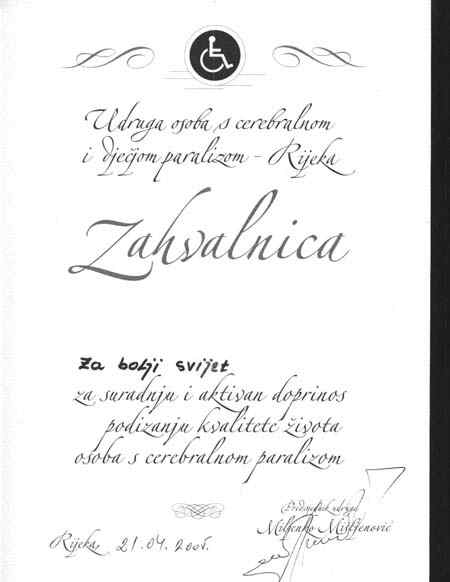 Udruga osoba s cerebralnom
i dječjom paralizom - Rijeka
Zahvalnica
Za bolji svijet
za suradnju i aktivan doprinos
podizanju kvalitete života
osoba s cerebralnom paralizom
Predsjednik udruge
Miljenko
Rijeka, 21.04.2005.